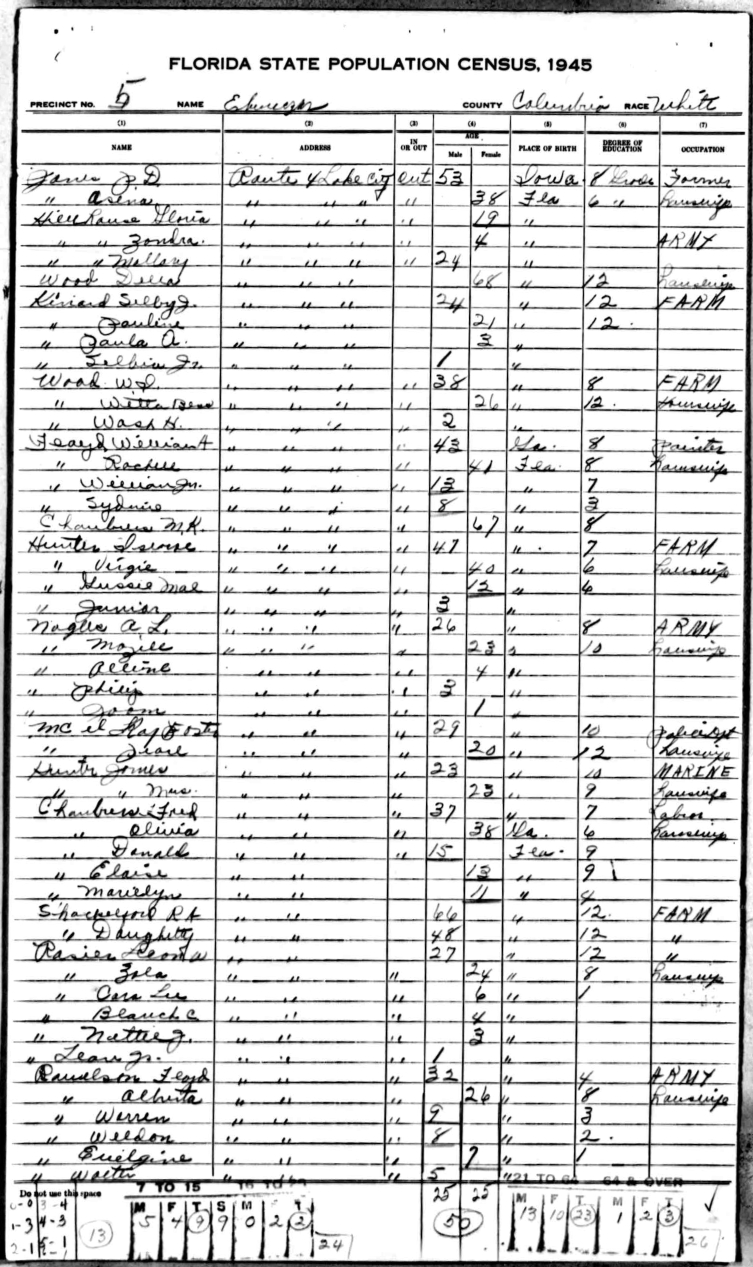 FLORIDA STATE POPULATION CENSUS, 1945
PRECINCT NO. 5 NAME Ebenezer COUNTY Columbia RACE White
(1) (2) (3) (4) (5) (6) (7)
NAME ADDRESS IN OR OUT AGE Male Female PLACE OF BIRTH DEGREE OF EDUCATION OCCUPATION
Jones J. D. Route 4 Lake City out 53 Iowa 8 Grade Farmer
" Asena " " " " 38 Fla 6 " housewife
Gloria " " " " 19 "
" " Zondra. " " " " 4 " ARMY
" " Mallory " " " " 24 "
Wood Della " " " 68 " 12 housewife
Kinard Selby J. " " " 24 " 12 FARM
" Pauline " " " 21 " 12.
" Paula A. " " " 3 "
" Jr. " " " 1 "
Wood W. " " " " 38 " 8 FARM
" Willa Bess " " " " 26 " 12. Housewife
" Wash H. " " " 2 "
Floyd William A " " " " 43 Ga. 8 painter
" " " " " 41 Fla. 8 housewife
" William Jr. " " " " 13 " 7
" Sydnie " " " " 8 " 3
M.R. " " " " 67 " 8
Hunter " " " " 47 " 7 FARM
" Virgie " " " " 40 " 6 housewife
" Gussie Mae " " " " 12 " 6
" Junior " " " " 3 "
A. L. " " " " 26 " 8 ARMY
" " " " " 23 " 10 housewife
" Alline " " " 4 "
" Philip " " " 3 "
" " " " 1 "
Foster " " " 29 " 10 Police Dpt
" " " " 20 " 12 housewife
Hunter James " " " 23 " 10 MARINE
" " Mrs. " " " 23 " 9 housewife
Fred " " " 37 " 7 Labor
" Olivia " " " 38 Ga. 6 housewife
" Donald " " " 15 Fla. 9
" Elaise " " 13 " 9
" Marilyn " " 11 " 4
R A " " 66 " 12. FARM
" Daughtry " " 48 " 12 "
Leon W " " 27 " 12 "
" Zola " " " 24 " 8 housewife
" Cora Lee " " " 6 " 1
" Blanch C " " " 4 "
" Nattie J. " " " 3 "
" Leon Jr. " " " 1 "
Floyd " " " 32 " 4 ARMY
" Alberta " " " 26 " 8 housewife
" Warren " " " 9 " 3
" Weldon " " " 8 " 2.
" " " " 7 " 1
" Walter " " " 5 "
Do not use this space 7 TO 15 25 25 21 TO 64 64 & OVER
M F T S M F T M F T M F T
13 5 4 9 9 0 2 2 24 50 13 10 23 1 2 3 26